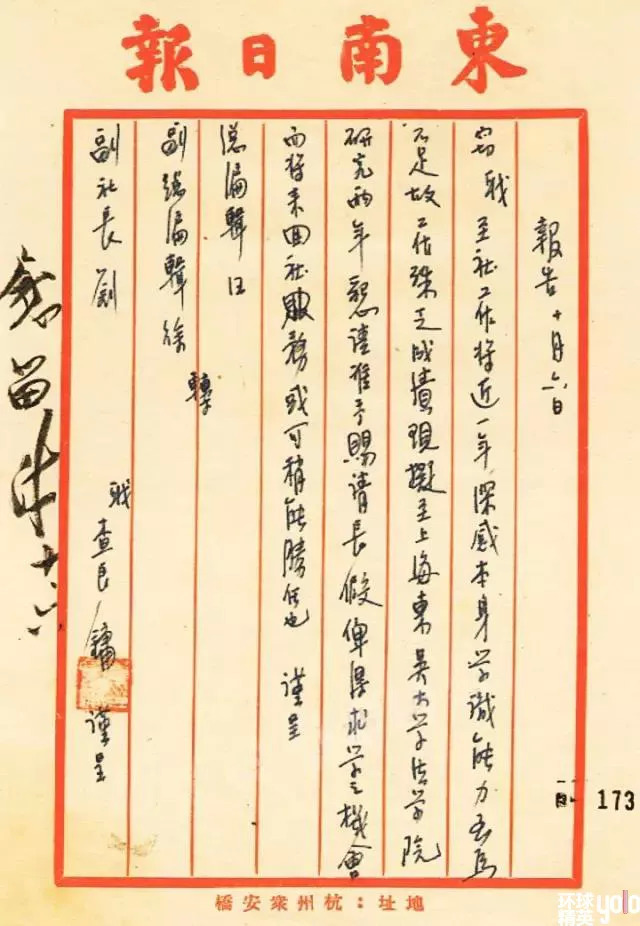 東南日報
報告 十月六日
竊職至社工作將近一年深感本身学識能力至為
不足故工作殊乏成績現擬至上海東吳大学法学院
研究兩年懇請准予賜請長假俾得求学之機會
而將来回社服務或可稍能勝任也 謹呈
總編輯汪
副總編輯徐 轉
副社長劉
職查良鏞 謹呈
慰留
十六
173
地址:杭州衆安橋
环球精英yolo